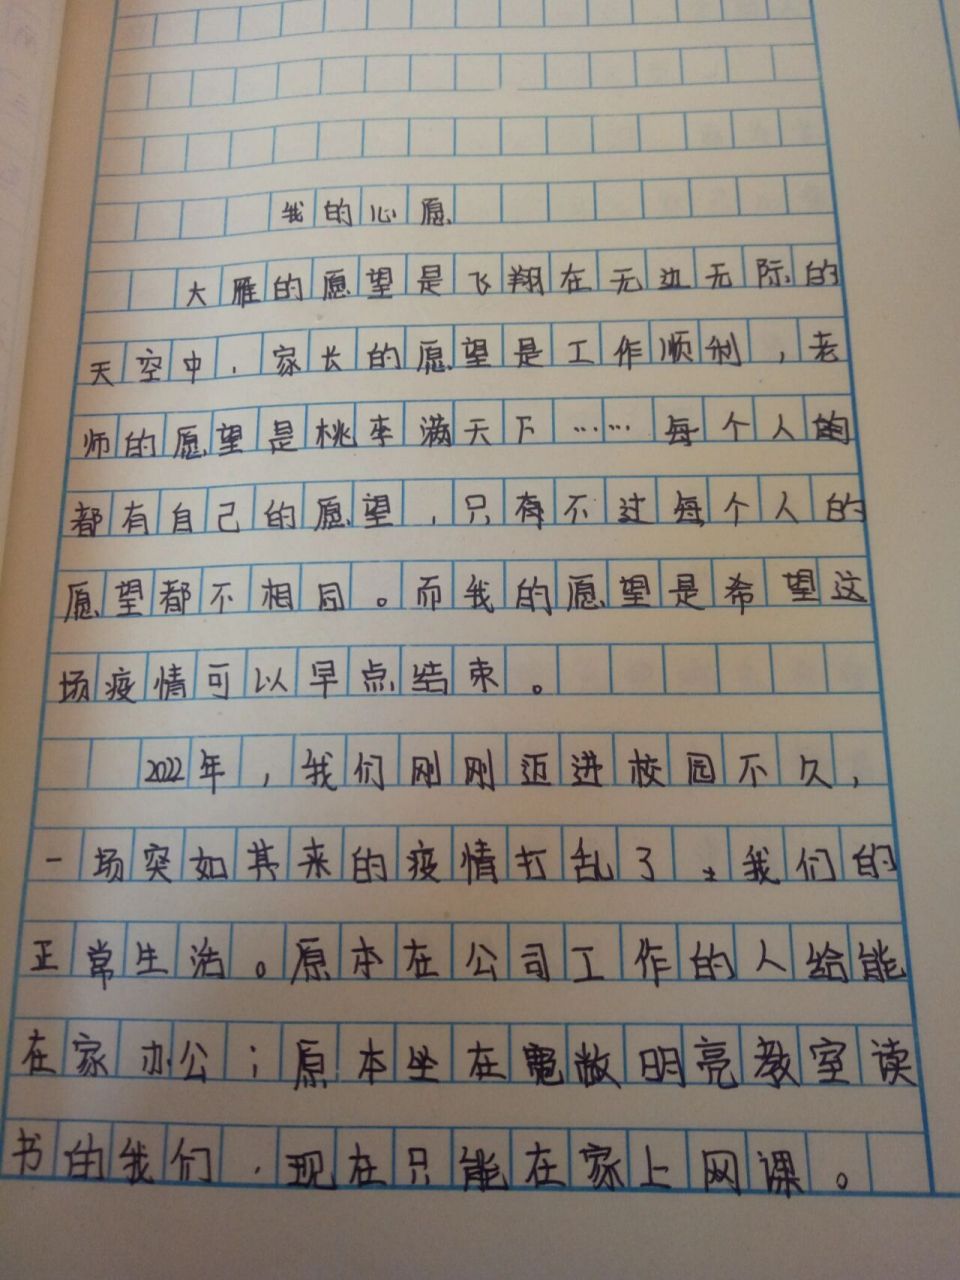 我的心愿
大雁的愿望是飞翔在无边无际的
天空中，家长的愿望是工作顺利，老
师的愿望是桃李满天下……每个人的
都有自己的愿望，只有不过每个人的
愿望都不相同。而我的愿望是希望这
场疫情可以早点结束。
2022年，我们刚刚迈进校园不久，
一场突如其来的疫情打乱了，我们的
正常生活。原本在公司工作的人给能
在家办公；原本坐在宽敞明亮教室读
书的我们，现在只能在家上网课。